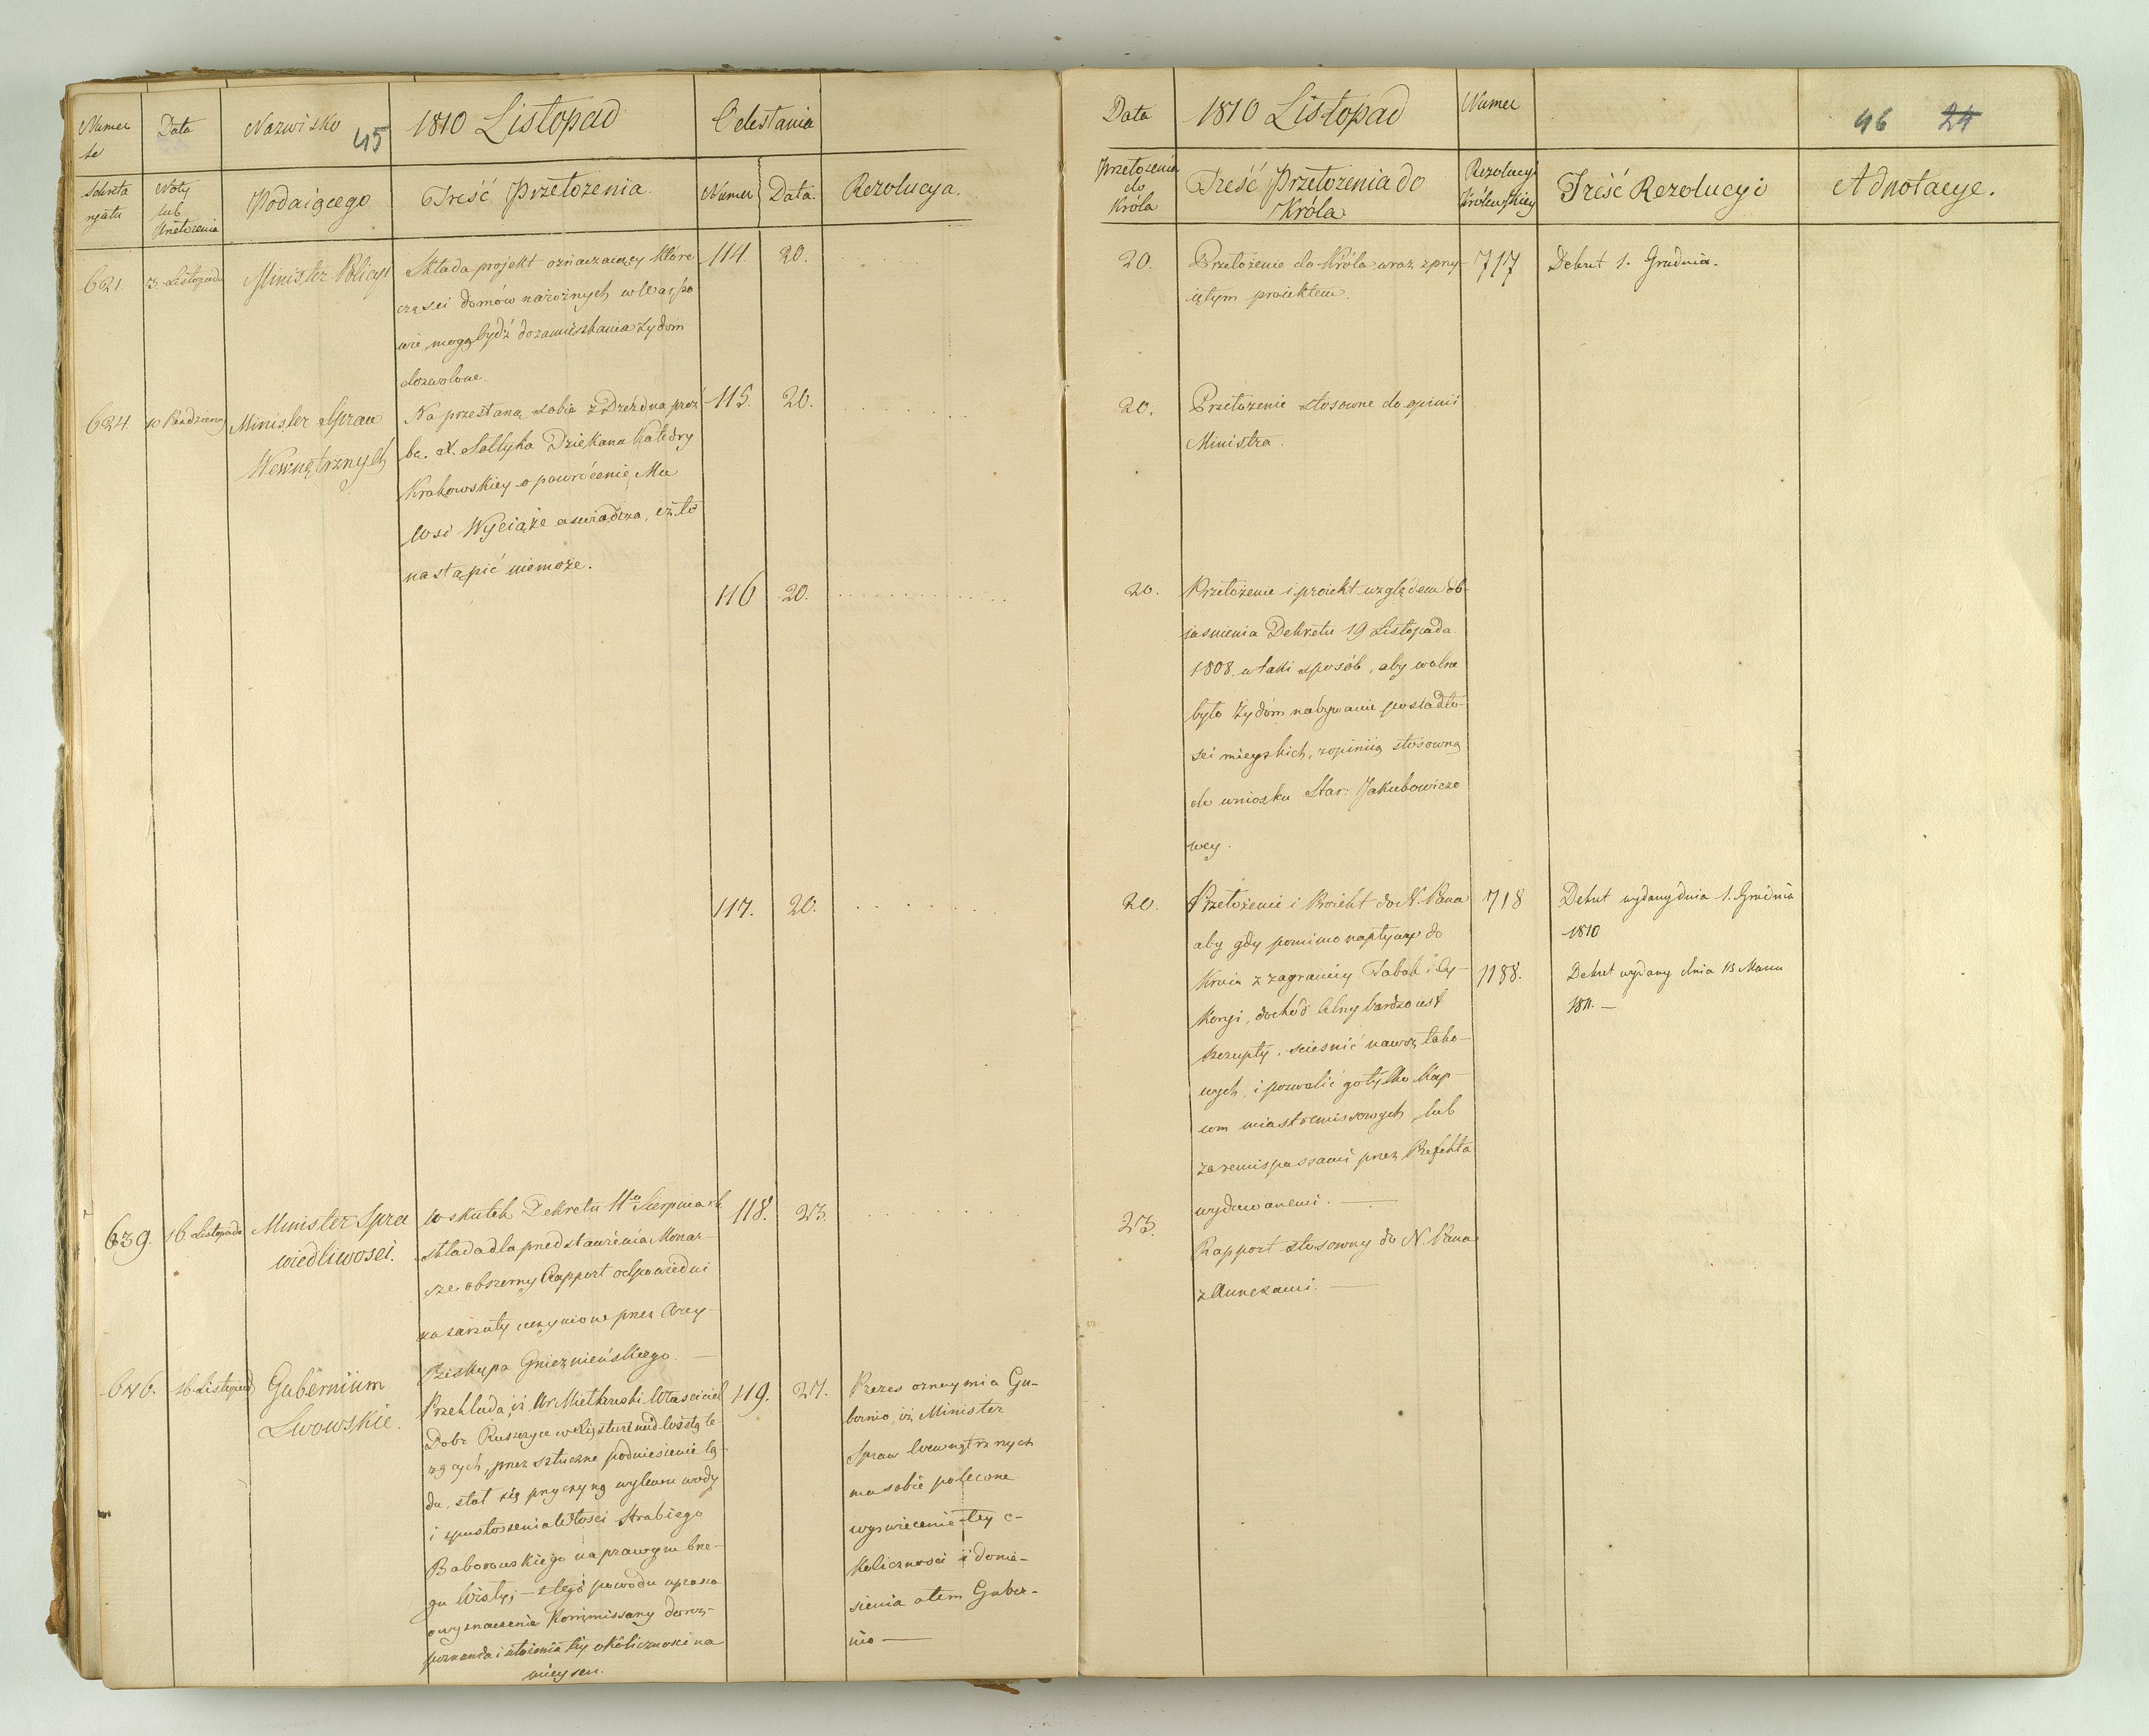 Numer
Data
Nazwisko
45
1810 Listopad
Odesłania
te
Sekreta
ryatu
Noty
lub
Wniesienia
Podaiącego
Treść Przełożenia.
Numer
Data.
Rezolucya.
621.
3 Listopada
Minister Policyi
Składa projekt oznaczaiący które
części domów narożnych w Warsza
wie mogą bydź do zamieszkania Żydom
dozwolone.
114.
20.
624.
10 Paździer
Minister Spraw
Wewnętrznych
Na przesłaną sobie z Drezdna proź
bę X. Sołtyka Dziekana Katedry
Krakowskiey o powrócenie Mu
Wsi Wyciąże oswiadcza, iż to
nastąpić niemoże.
115.
20.
116
20.
117.
20.
639.
16 Listopada
Minister Spra
wiedliwosci.
W skutek Dekretu 11go Sierpnia r b.
składa dla przedstawienia Monar
sze obszerny Rapport odpowiedni
na zarzuty uczynione przez Arcy
Biskupa Gnieznieńskiego. —
118.
23.
646.
16 Listopad
Gubernium
Lwowskie.
Przekłada, iż Ur Mietkowski Własciciel
Dobr Ruszcza w
żących, przez sztuczne podniesienie lą
du, stał się przyczyną wylewu wody
i spustoszenia Włosci Hrabiego
Baborowskiego na prawym brze-
gu Wisły; — z tego powodu uprasza
o wyznaczenie Kommissarzy do roz-
poznania i złożenia tey okoliczności na
mieyscu.
119.
27.
Prezes oznaymia Gu-
bernio, iż Minister
Spraw Wewnątrznych
ma sobie polecone
wyswiecenie tey o-
koliczności i donie-
sienia o tem Guber-
nio —
Data
1810 Listopad
Numer
46 24
Przełożenia
do
Króla
Treść Przełożenia do
Króla
Rezolucyi
Królewskiey
Treść Rezolucyi
Adnotacye.
20.
Przełożenie do Króla wraz z przy-
iętym proiektem.
717
Dekret 1. Grudnia.
20.
Przełożenie stosowne do opinii
Ministra.
20.
Przełożenie i proiekt względem ob-
iasnienia Dekretu 19 Listopada
1808. w taki sposób, aby wolne
było Żydóm nabywanie posiadło-
sci mieyskich, z opiniią stosowną
do wniosku Star: Jakubowiczo
wey.
20.
Przełożenie i Proiekt do N. Pana
aby gdy pomimo napływu do
Kraiu z zagranicy Tabak i Cy-
koryi, dochód Celny bardzo iest
szczupły, sciesnić nawozy tako-
wych, i pozwolić go tylko Kup-
com miast remissowych, lub
za remispassami przez Prefekta
wydawanemi. —
718
Dekret wydany dnia 1. Grudnia
1810
1188.
Dekret wydany dnia 13 Marca
1811. —
23.
Rapport stosowny do N. Pana
z Annexami. —